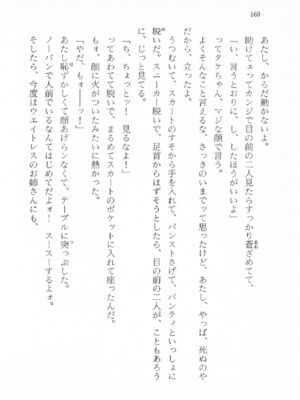 160
あたし、からだ動かないよ。
助けてェってカンジで目の前の二人見たらすっかり蒼ざめてて、
「い、言うとおりに、し、したほうがいいよ」
ってタケちゃん、マジな顔で言う。
よくそんなこと言えるな、さっきのいまでって思ったけど、あたし、やっぱ、死ぬのや
だから、立ったよ。
うつむいて、スカートのすそから手を入れて、パンストさげて、パンティといっしょに
脱いだ。スニーカー脱いで、足首からはずそうとしたら、目の前の二人が、こともあろう
に、じっと見てる。
「ち、ちょっとッ! 見るなよ!」
ってあわてて脱いで、まるめてスカートのポケットに入れて座ったんだけど、
もォ、顔に火がついたみたいに熱かった。
「やだ、もォーッ!」
あたし恥ずかしくて顔あげらんなくて、テーブルに突っぷした。
ノーパンで人前でいるなんてはじめてだよォ! スースーするよォ。
そしたら、今度はウエイトレスのお姉さんにも、